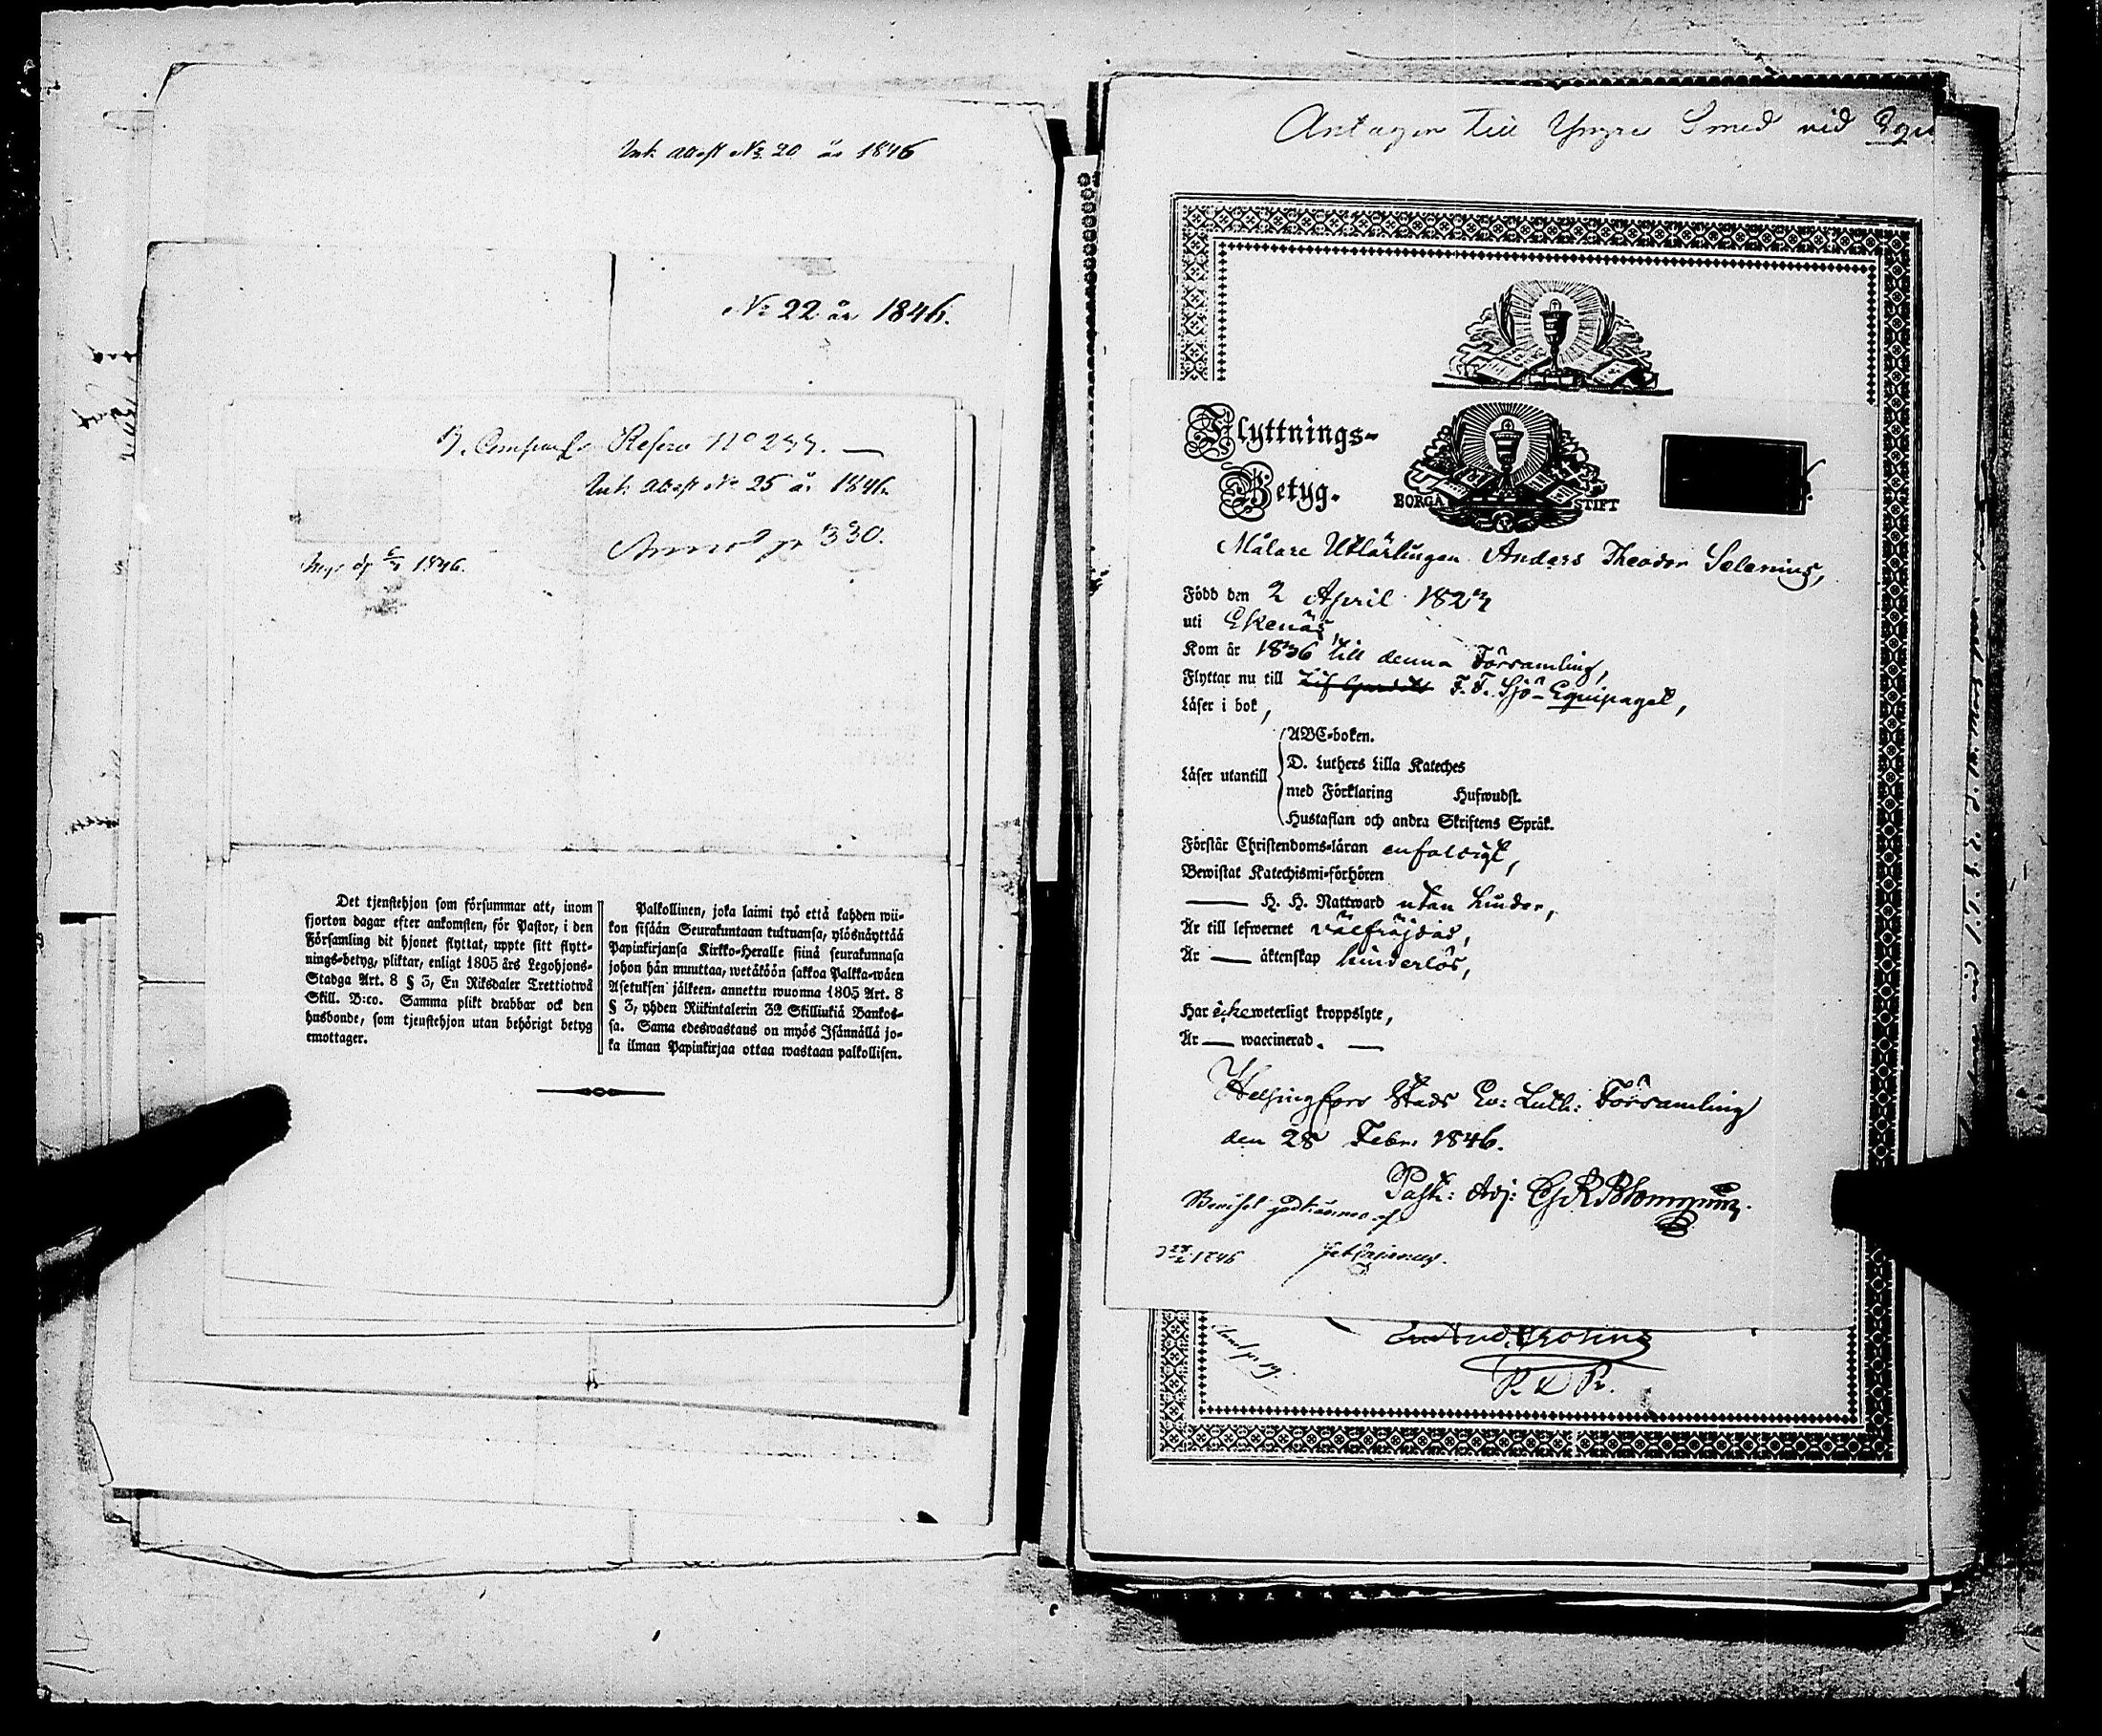 Ink attest No 20 år 1846
No 22 år 1846.
Compani Reserv No
Ink attest No 25 år 1846.
Annot p 330.
1846.
Det tjenstehjon som försummar att, inom
fjorton dagar efter ankomsten, för Pastor, i den
Församling dit hjonet flyttat, uppte sitt flytt-
nings-betyg, pliktar, enligt 1805 års Legohjons-
Stadga Art. 8 § 3, En Riksdaler Trettiotwå
Skill. B:co. Samma plikt drabbar ock den
husbonde, som tjenstehjon utan behörigt betyg
emottager.
Palkollinen, joka laimi lyö että kahden wii-
kon sisään Seurakuntaan tultuansa, ylösnäyttää
Papinkirjansa Kirkko-Heralle siinä seurakunnasa
johon hän muuttaa, wetäköön sakkoa Palkka-wäen
Asetuksen jälkeen annettu wuonna 1805 Art. 8
§ 3, yhden Riikintalerin 32 Skillinkiä Bankos-
sa. Sama edeswastaus on myös Isännällä jo-
ka ilman Papinkirjaa ottaa wastaan palkollisen.
Antagen till Yngre Smed vid
Flyttnings-
Betyg.
BORGÅ STIFT
Målare Utlärlingen Anders Theodor Selenius,
Född den 2 April 1824
uti Ekenäs,
Kom år 1836 till denna Församling,
Flyttar nu till F. F. Sjö-Equipaget,
Läser i bok,
Läser utantill
ABC-boken.
D. Luthers Lilla Kateches
med Förklaring Hufwudst.
Hustaflan och andra Skriftens Språk.
Förstår Christendoms-läran enfaldigt,
Bewistat Katechismi-förhören
— H. H. Nattward utan hinder,
Är till lefwernet välfräjdad,
Är — äktenskap hinderlös,
Har icke weterligt kroppslyte,
Är — waccinerad. —
Helsingfors Stads Ev: Luth: Församling
den 28 Febr. 1846.
Past: Adj:
1846